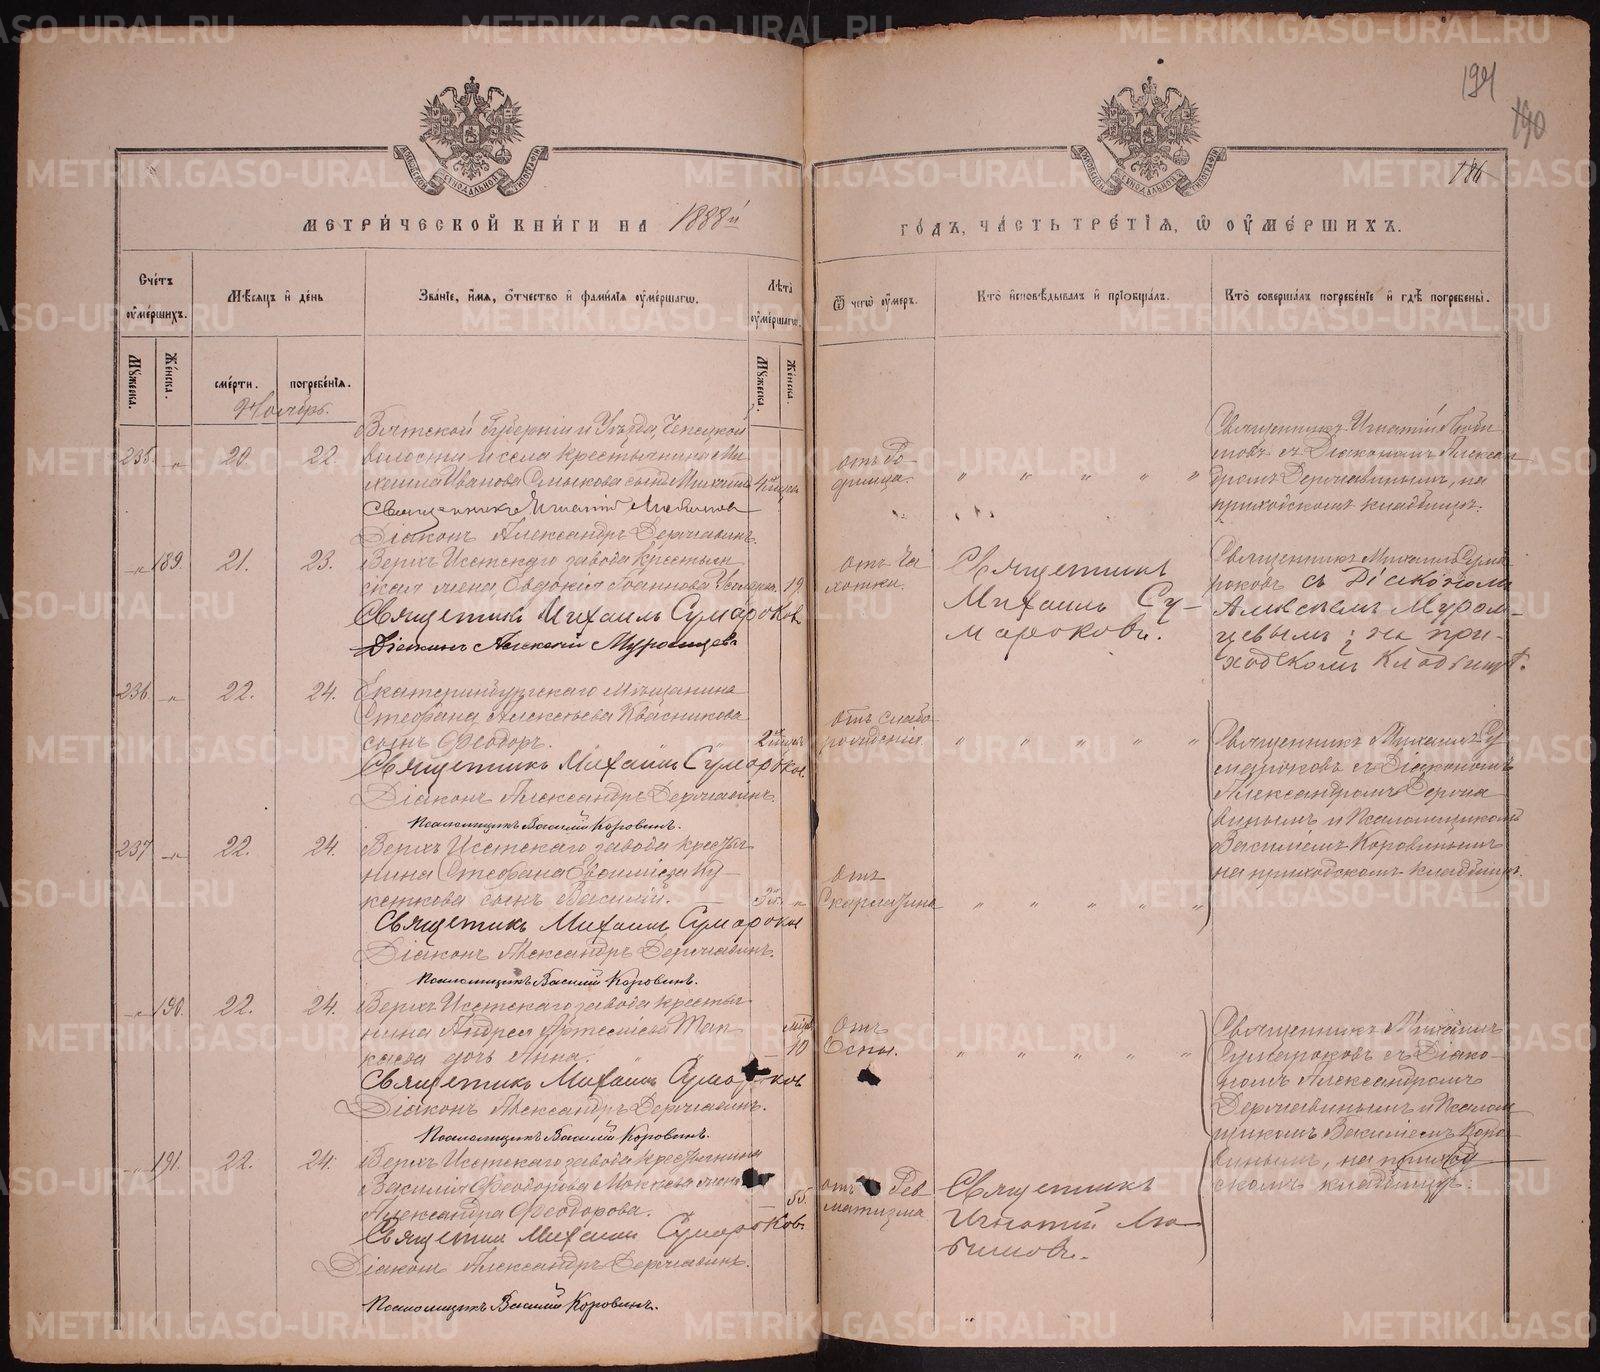 194
190
186
МЕТРИЧЕСКОЙ КНИГИ НА 1888й
ГОДЪ, ЧАСТЬ ТРЕТІЯ, Ѿ ОУМЕРШИХЪ.
Счетъ оумершихъ.
Мѣсяцъ и день
Званіе, имя, отчество и фамилія оумершагѡ.
Лѣта оумершагѡ.
Ѿ чегѡ оумеръ.
Кто исповѣдывалъ и пріобщалъ.
Кто совершалъ погребеніе и гдѣ погребены.
Мужеска.
Женска.
смерти.
погребенія.
Мужеска.
Женска.
Ноябрь.
Вятской Губерніи и Уѣзда, Чепецкой
235. " 20 22. волости и села крестьянина Ми
хаила Иванова сынъ Михаилъ
Священникъ Игнатій Любимовъ
Діаконъ Александръ Державинъ.
отъ Ро-
димца.
Священникъ Игнатій Люби
мовъ съ Діакономъ Алексан
дромъ Державинымъ, на
приходскомъ кладбищѣ.
" 189. 21. 23. Верхъ Исетскаго завода Крестьян
ская жена Евдокия Іоаннова 19.
Священникъ Михаилъ Сумароковъ
Діаконъ Алексій Муромцевъ
отъ Ча
хотки.
Священникъ
Михаилъ Су-
мароковъ.
Священникъ Михаилъ Сума
роковъ съ Діакономъ
Алексѣемъ Муром-
цевымъ; на при-
ходскомъ кладбищѣ.
236. " 22. 24. Екатеринбургскаго Мѣщанина
Стефана Алексѣева Квасникова
сынъ Ѳеодоръ.
Священникъ Михаилъ Сумароковъ
Діаконъ Александръ Державинъ.
Псаломщикъ Василій Коровинъ.
отъ слабо-
рожденія.
Священникъ Михаилъ Су
мароковъ съ Діакономъ
Александромъ Держа
винымъ и Псаломщикомъ
Василіемъ Коровинымъ
на приходскомъ кладбищѣ.
237 " 22. 24. Верхъ Исетскаго завода крестья
нина Стефана Евѳиміева Ку-
сынъ Василій.
Священникъ Михаилъ Сумароковъ
Діаконъ Александръ Державинъ.
Псаломщикъ Василій Коровинъ.
отъ
Скарлатины
" 190. 22. 24. Верхъ Исетскаго завода крестья
нина Андрея
дочь Анна. 10
Священникъ Михаилъ Сумароковъ
Діаконъ Александръ Державинъ.
Псаломщикъ Василій Коровинъ.
отъ
Оспы.
Священникъ Михаилъ
Сумароковъ съ Діако-
номъ Александромъ
Державинымъ и Псалом
щикомъ Василіемъ Коро
винымъ, на приход
скомъ кладбищѣ.
" 191. 22. 24. Верхъ Исетскаго завода Крестьянина
Василія Ѳеодорова жена
Александра Ѳеодорова. 55.
Священникъ Михаилъ Сумароковъ
Діаконъ Александръ Державинъ.
Псаломщикъ Василій Коровинъ.
отъ Рев
матизма
Священникъ
Игнатій Лю
бимовъ.
METRIKI.GASO-URAL.RU